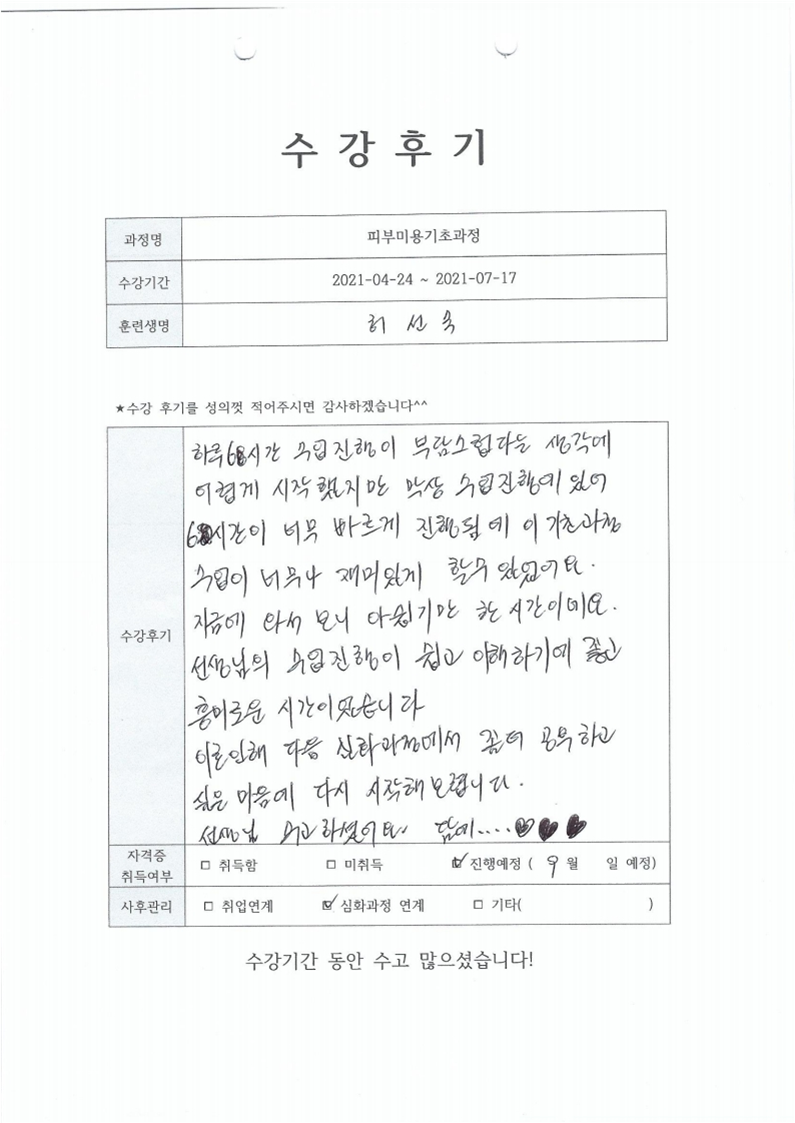 수 강 후 기
과정명 피부미용기초과정
수강기간 2021-04-24 ~ 2021-07-17
훈련생명 허 선 숙
★수강 후기를 성의껏 적어주시면 감사하겠습니다^^
수강후기
하루 6시간 수업진행이 부담스럽다는 생각에
어렵게 시작했지만 막상 수업진행에 있어
6시간이 너무 빠르게 진행됨에 이 기초과정
수업이 너무나 재미있게 할수 있었어요.
지금에 와서 보니 아쉽기만 한 시간이네요.
선생님의 수업진행이 쉽고 이해하기에 좋고
흥미로운 시간이였습니다
이로인해 다음 심화과정에서 좀더 공부하고
싶은 마음에 다시 시작해보렵니다.
선생님 수고하셨어요. 담에....♥♥♥
자격증 취득여부 □ 취득함 □ 미취득 ☑ 진행예정 ( 9 월 일 예정)
사후관리 □ 취업연계 ☑ 심화과정 연계 □ 기타( )
수강기간 동안 수고 많으셨습니다!